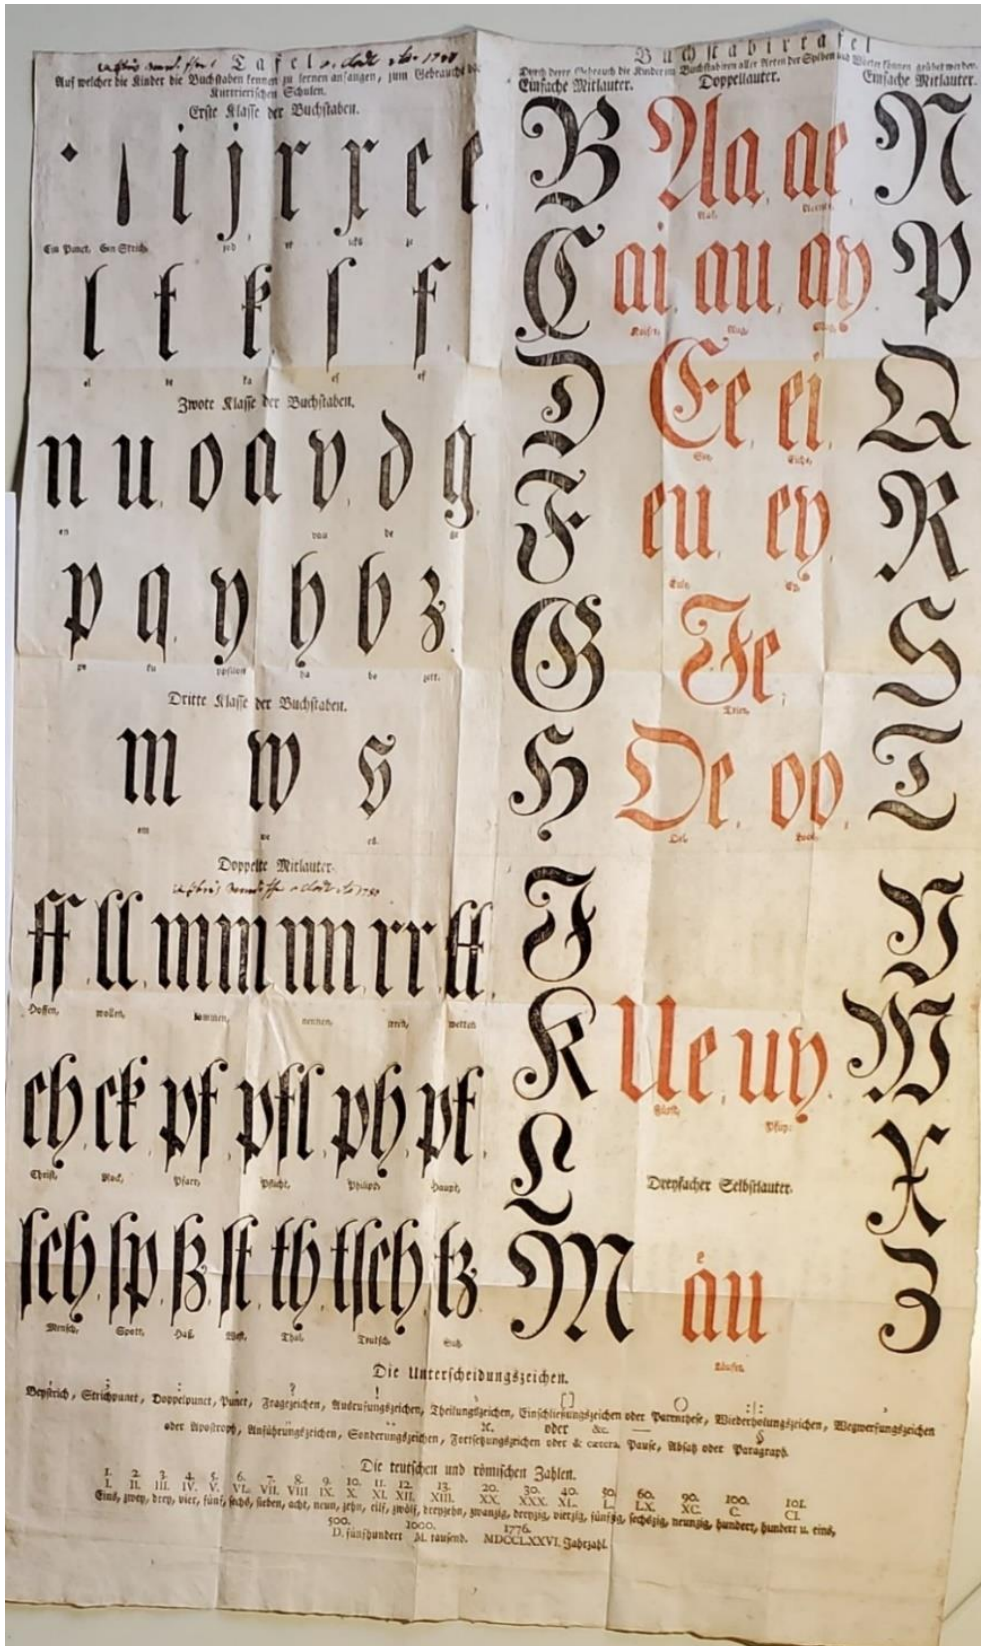 Tafel
Auf welcher die Kinder die Buchstaben kennen zu lernen anfangen, zum Gebrauche der
Kurtrierischen Schulen.
Erste Klasse der Buchstaben.
i j r x c e
Ein Punct, Ein Strich, jod er iks ze
l t k ſ f
el te ka eſ ef
Zwote Klasse der Buchstaben.
n u o a v d g
en vau de ge
p q y h b z
pe ku ypsilon ha be zett.
Dritte Klasse der Buchstaben.
m w s
em we es.
Doppelte Mitlauter.
ff ll mm nn rr tt
Hoffen, wollen, kommen, nennen, irren, wetten
ch ck pf pfl ph pt
Christ, Pfarr, Pflicht, Philipp, Haupt,
ſch ſp ß ſt th tſch tz
Mensch, Spott, Haß, Thal, Teutsch,
Buchstabirtafel
Durch deren Gebrauch die Kinder im Buchstabiren aller Arten der Sylben und Wörter können geübet werden.
Einfache Mitlauter. Doppellauter. Einfache Mitlauter.
B Aa, ae N
Aal,
C ai, au, ay P
Aug,
D Ee, ei, Q
See, Eiche,
F eu, ey, R
Eule, Ey,
G Ie, S
H Oe, oo, T
J V
K Ue, uy, W
Pfuy.
L X
Dreyfacher Selbstlauter.
M äu Z
Läufer,
Die Unterscheidungszeichen.
; : . ? ! [ ] ( ) :|:
Beystrich, Strichpunct, Doppelpunct, Punct, Fragezeichen, Ausrufungszeichen, Theilungszeichen, Einschließungszeichen oder Parenthese, Wiederholungszeichen, Wegwerfungszeichen
oder &c. — §
oder Apostroph, Anführungszeichen, Sonderungszeichen, Fortsetzungszeichen oder & cætera, Pause, Absatz oder Paragraph.
Die teutschen und römischen Zahlen.
1. 2. 3. 4. 5. 6. 7. 8. 9. 10. 11. 12. 13. 20. 30. 40. 50. 60. 90. 100. 101.
I. II. III. IV. V. VI. VII. VIII IX. X. XI. XII. XIII. XX. XXX. XL. L. LX. XC. C. CI.
Eins, zwey, drey, vier, fünf, sechs, sieben, acht, neun, zehn, eilf, zwölf, dreyzehn, zwanzig, dreyzig, vierzig, fünfzig, sechszig, neunzig, hundert, hundert u. eins,
500. 1000. 1776.
D. fünfhundert M. tausend. MDCCLXXVI. Jahrzahl.